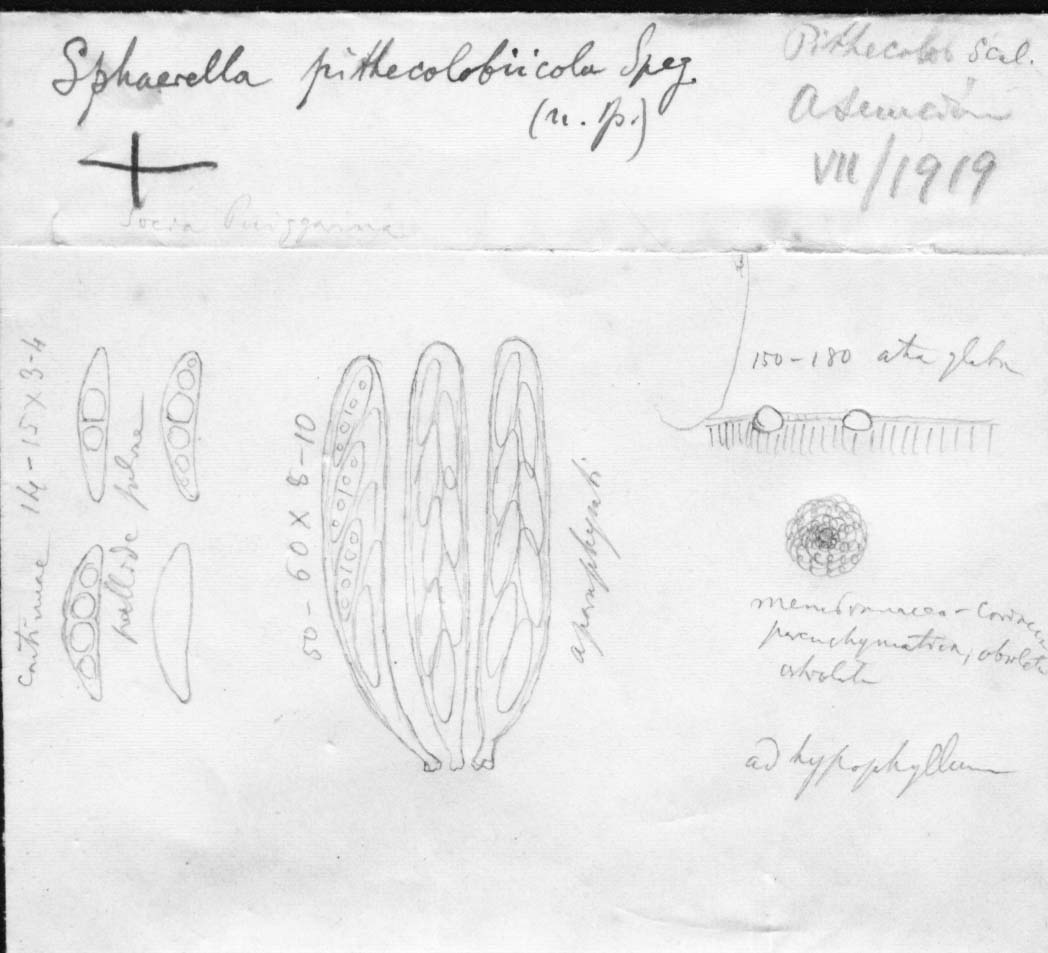 Sphaerella pithecolobiicola Speg.
(n. sp.)
Pithecolob scal.
Asunción
VII/1919
Socia Puiggarina
continuae 14-15 x 3-4
pallide
50-60 x 8-10
aparaphysati
150-180 atra glabra
membranacea-coriacea
parenchymatica, obsolete
ostiolata
ad hypophyllum